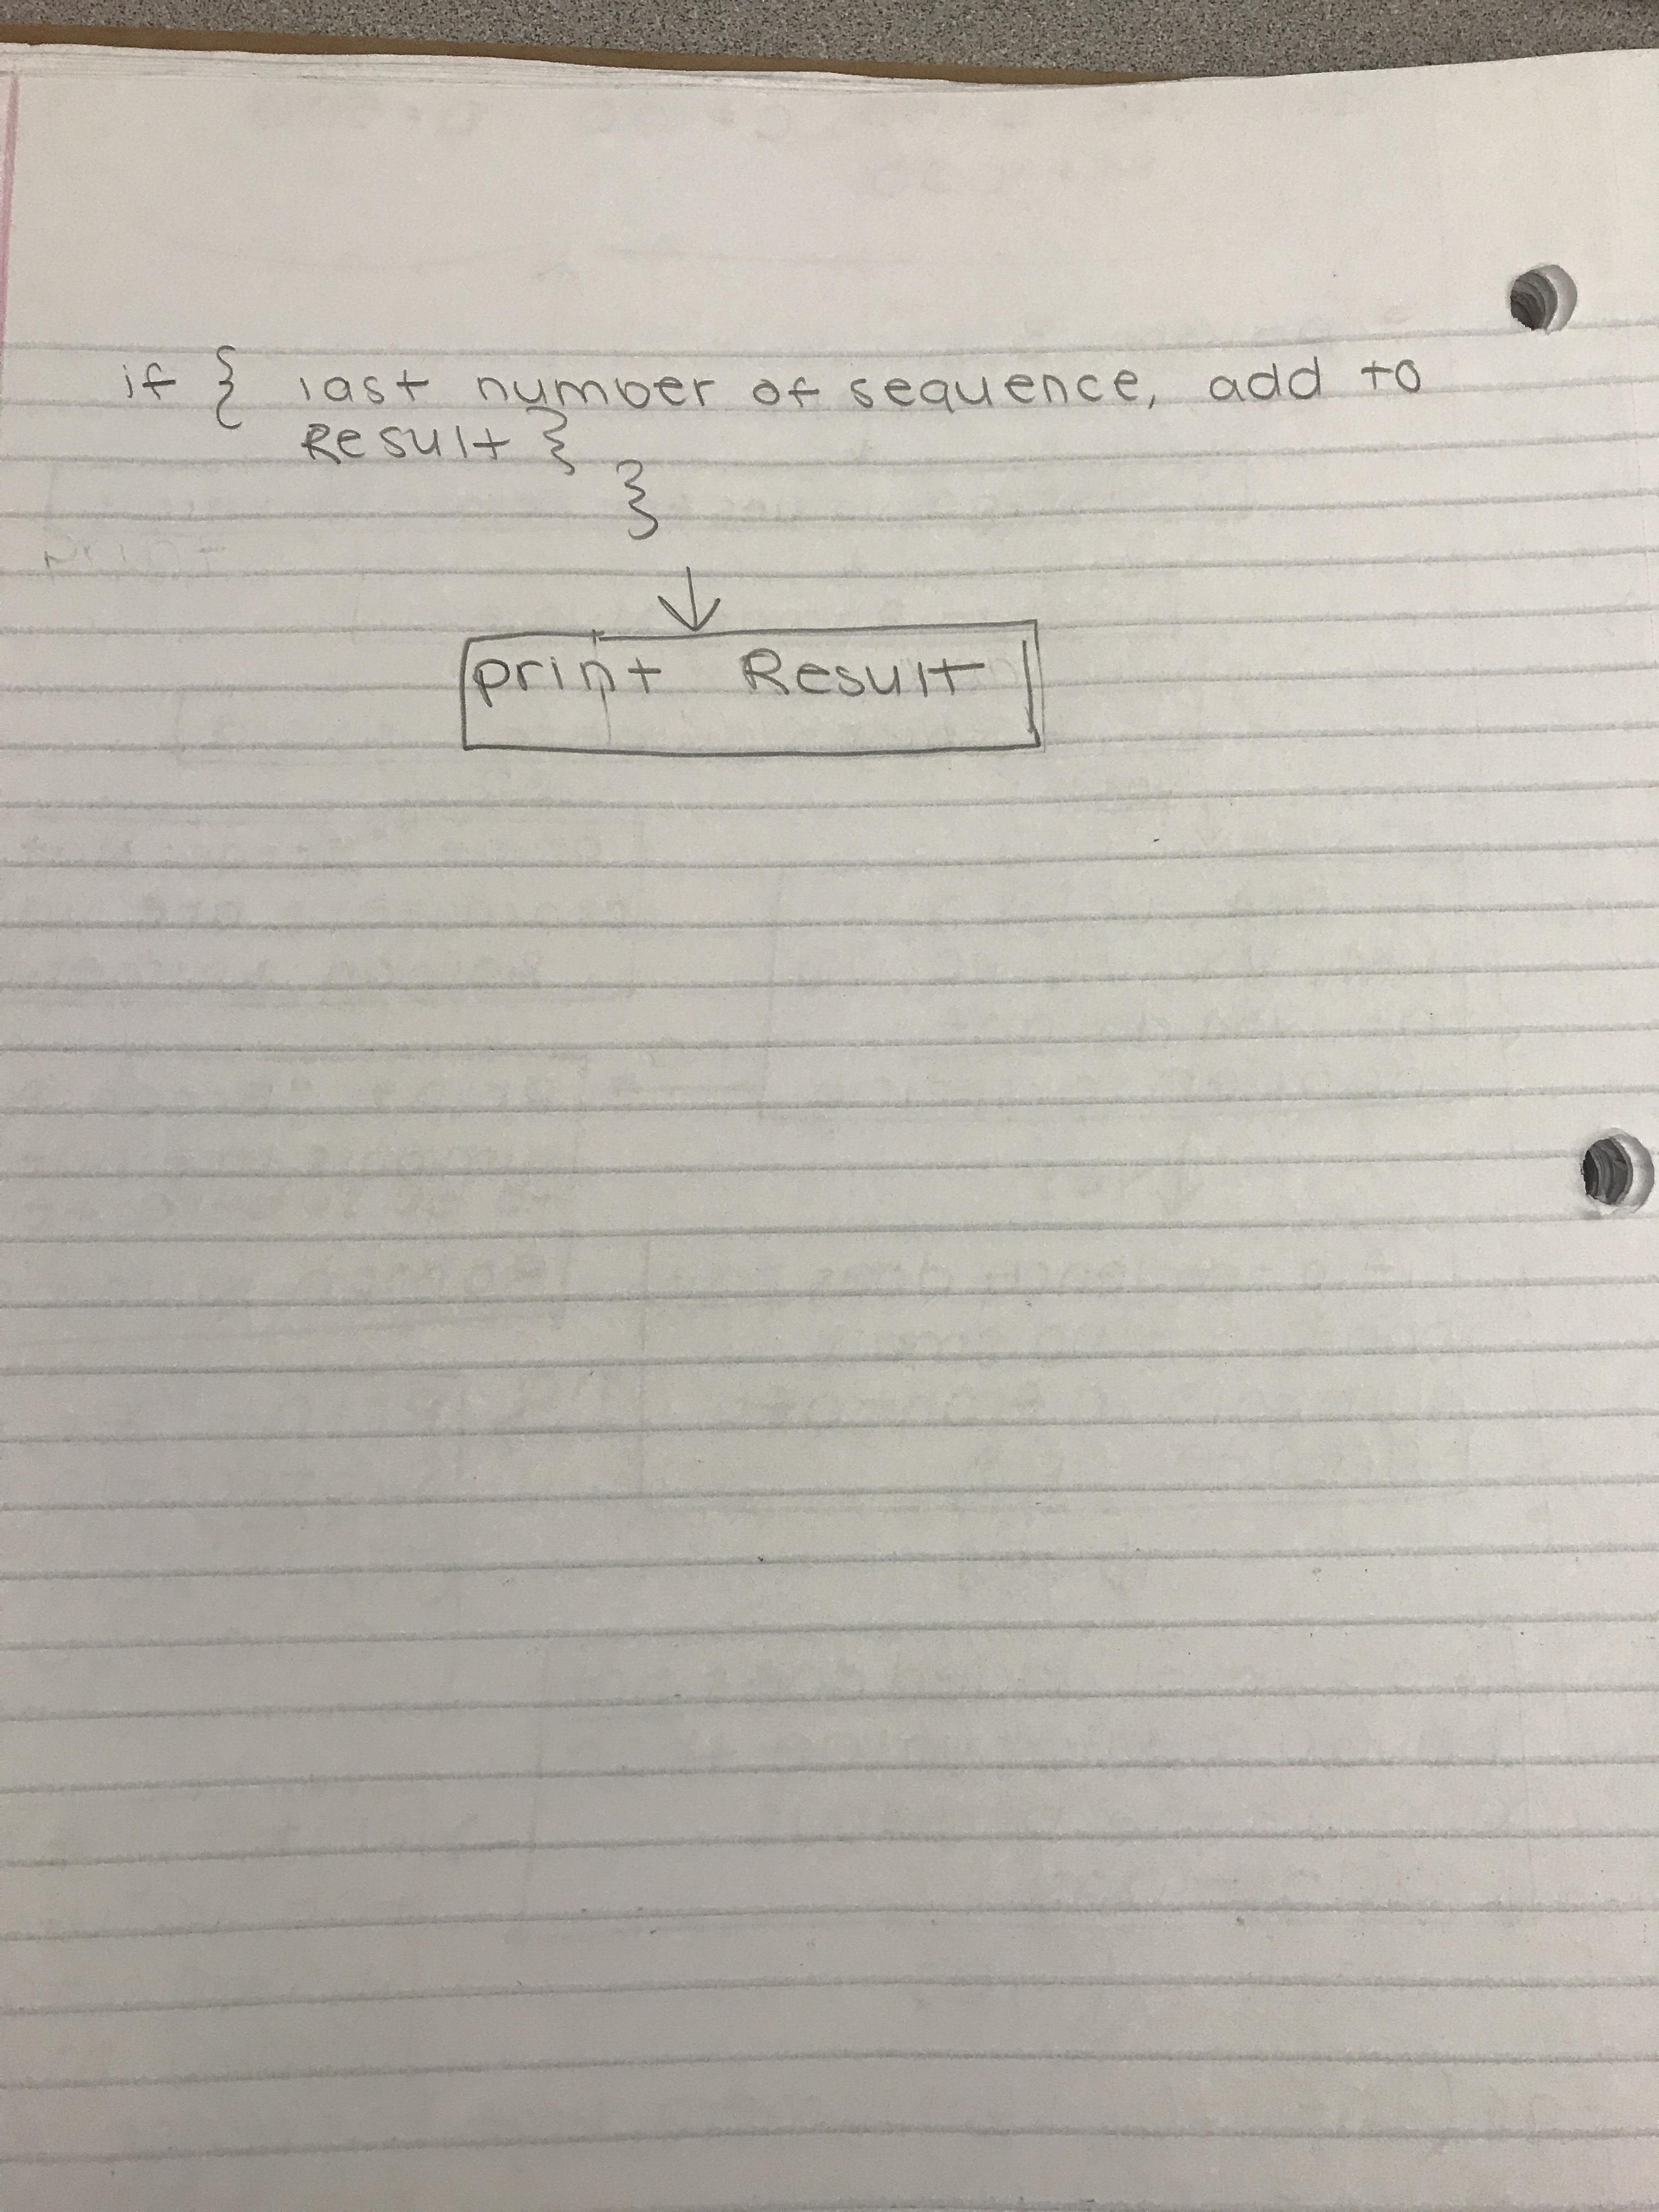 if { last number of sequence, add to
Result }
}
↓
print Result